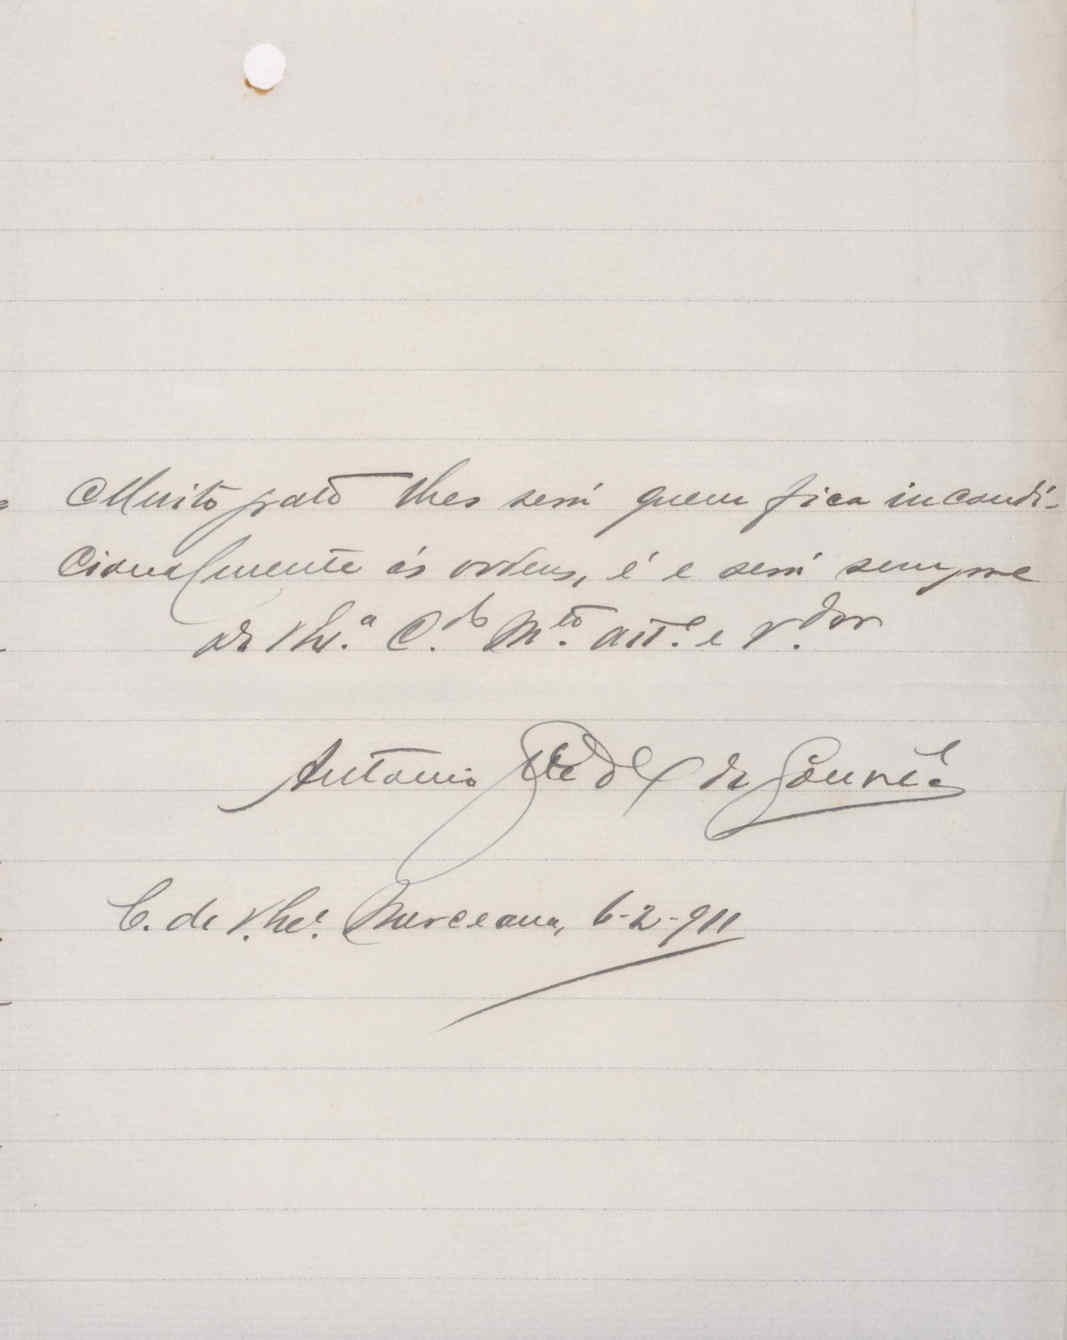 Muito grato lhes será quem fica incondi-
cionalmente ás ordens, é e será sempre
de V. Ex.ª C.do M.to att.º e V.dor
Antonio de Gouveia
C. de V. Merceana, 6-2-911